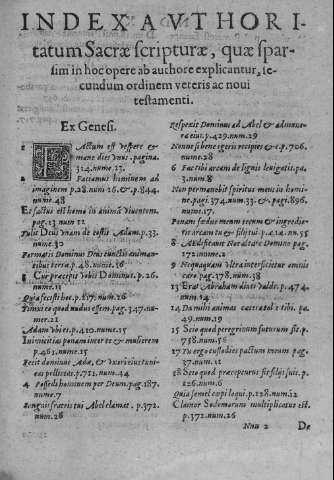 INDEX AVTHORI-
tatum Sacræ scripturæ, quæ spar-
sim in hoc opere ab authore explicantur, se-
cundum ordinem veteris ac noui
testamenti.
Ex Genesi.
1 FActum est vespere &
mane dies vnus. pagina.
314. nume. 23.
Faciamus hominem ad
imaginem p. 28. num 26. & p. 844.
nume. 48
Et factus est homo in animã viuentem.
pag. 13 num 12
Tulit Deus vnam de costis Adam. p. 33.
nume. 32
Formatis Dominus Deus cunctis animan-
tibus terra. p. 48. nume. 36
Cur præcepit vobis Dominus. p. 26.
nume. 11
Quia fecisti hoc. p. 217. num. 26
Timui eo quod nudus essem. pag. 347. nu-
mer. 21
Adam vbi es. p. 410. nume. 15
Inimicitias ponam inter te & mulierem
p. 461. nume. 15
Fecit dominus Adæ, & vxori eius tuni-
cas pelliceas. p. 721. num. 44
4 Possedi hominem per Deum. pag. 187.
nume. 7
Sanguis fratris tui Abel clamat. p. 372.
num. 26
Respexit Dominus ad Abel & ad mune-
ra eius. p. 429. num. 29
Nonne si bene egeris recipies &c. p. 706.
nume. 28
6 Fac tibi arcam de lignis leuigatis. pa.
3. num. 16
Non permanebit spiritus meus in homi-
ne. pagi. 374. num. 33. & pag. 896.
num. 17.
Ponam fœdus meum tecum & ingredie-
ris arcam tu & filij tui. p. 414. nu. 55
8 Aedificauit Noe altare Domino pag.
172. nume. 2
9 Nequaquam vltra interficietur omnis
caro pag. 178. num. 38
13 Erat Abraham diues valde. p. 474.
num. 14
14 Da mihi animas cætera tolle tibi. pa.
49. num. 41
15 Scito quod peregrinum futurum sit.
p. 758. num. 56
17 Tu ergo custodies pactum meum pag.
37. num. 11
18 Scio quod præcepturus sit filijs suis. p.
226. num. 6
Quia semel cœpi loqui. p. 128. num. 12
Clamor Sodomorum multiplicatus est.
p. 372. num. 26
Nnn 2 De